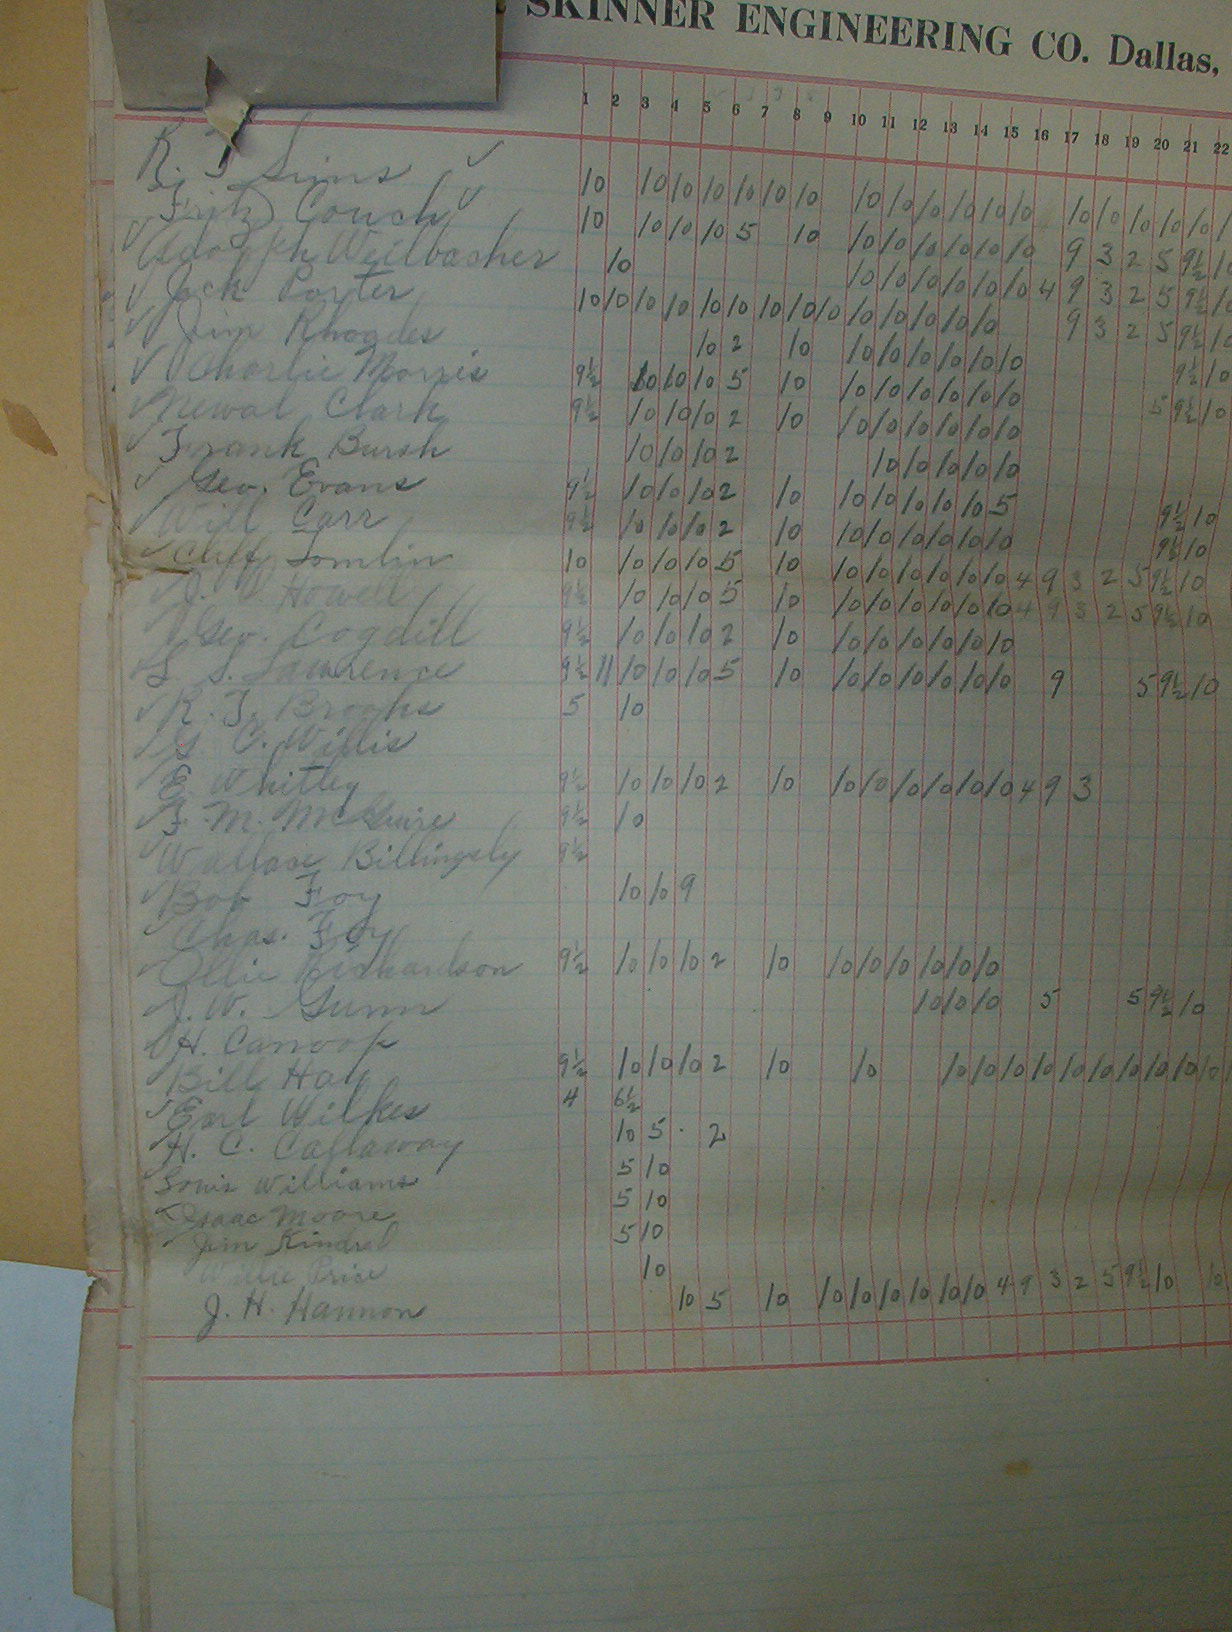 SKINNER ENGINEERING CO. Dallas,
1 2 3 4 5 6 7 8 9 10 11 12 13 14 15 16 17 18 19 20 21 22
Sims ✓ 10 10 10 10 10 10 10 10 10 10 10 10 10 10 10 10 10 10
Fritz Couch ✓ 10 10 10 10 5 10 10 10 10 10 10 10 9 3 2 5 9½ 10
✓ Adolph Weilbacher 10 10 10 10 10 10 10 4 9 3 2 5 9½ 10
✓ Jack Porter 10 10 10 10 10 10 10 10 10 10 10 10 10 10 9 3 2 5 9½ 10
✓ Jim Rhoades 10 2 10 10 10 10 10 10 10 9½ 10
✓ Charlie Morris 9½ 10 10 10 5 10 10 10 10 10 10 10 5 9½ 10
✓ Newal Clark 9½ 10 10 10 2 10 10 10 10 10 10 10
✓ Frank Bursh 10 10 10 2 10 10 10 10 10
✓ Geo. Evans 9½ 10 10 10 2 10 10 10 10 10 10 5 9½ 10
✓ Will Carr 9½ 10 10 10 2 10 10 10 10 10 10 10 9½ 10
✓ Cliff Tomlin 10 10 10 10 5 10 10 10 10 10 10 10 4 9 3 2 5 9½ 10
✓ J. Howell 9½ 10 10 10 5 10 10 10 10 10 10 10 4 9 3 2 5 9½ 10
✓ Geo. Cogdill 9½ 10 10 10 2 10 10 10 10 10 10 10
S. S. Lawrence 9½ 11 10 10 10 5 10 10 10 10 10 10 10 9 5 9½ 10
✓ R. T. Brooks 5 10
✓ C. Willis
✓ E. Whitley 9½ 10 10 10 2 10 10 10 10 10 10 10 4 9 3
✓ F. M. McGuire 9½ 10
✓ Wallace Billingsly 9½
✓ Bob Foy 10 10 9
✓ Chas. Foy
✓ Ollie Richardson 9½ 10 10 10 2 10 10 10 10 10 10 10
✓ J. W. Gunn 10 10 10 5 5 9½ 10
✓ H. Canook
Bill Hay 9½ 10 10 10 2 10 10 10 10 10 10 10 10 10 10 10 10
✓ Earl Wilkes 4 6½
✓ H. C. Callaway 10 5 2
Louis Williams 5 10
✓ Isaac Moore 5 10
✓ Jim Kindrel 5 10
Willie Price 10
J. H. Hannon 10 5 10 10 10 10 10 10 10 4 9 3 2 5 9½ 10 10